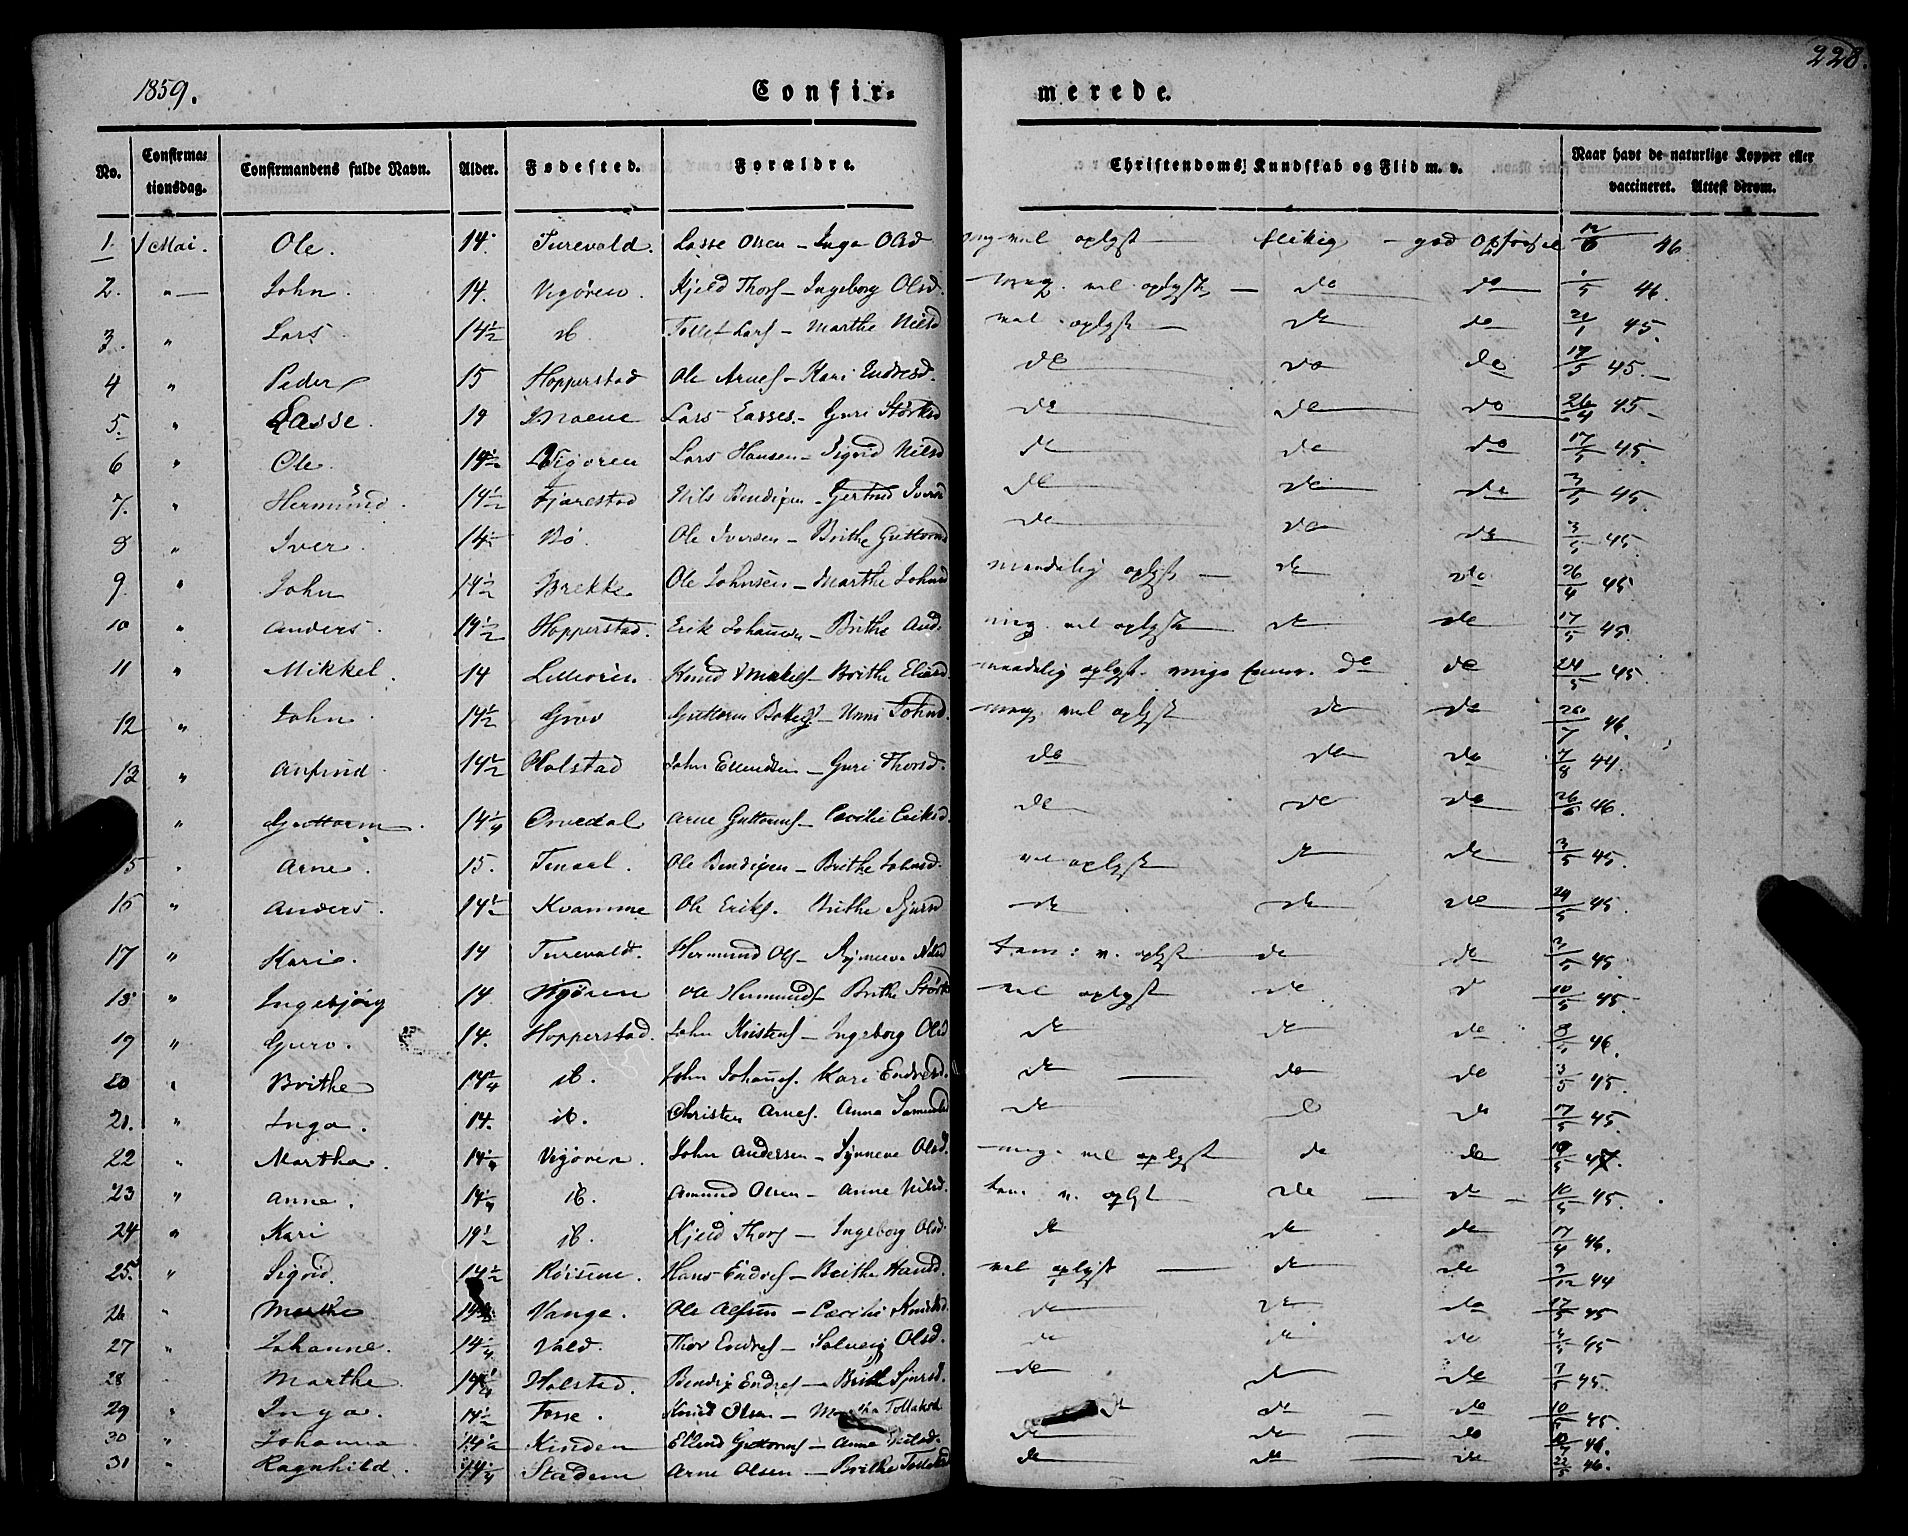 228.
1859.
Confir= merede.
No. Confirma= tionsdag. Confirmandens fulde Navn. Alder. Fødested. Forældre. Christendoms Kundskab og Flid m. v. Naar havt de naturlige Kopper eller vaccineret. Attest derom.
1. 1 Mai. Ole. 14. Turevold. Lasse Olsen – Inga Olsd vel oplyst flikig – god Opførsel 46
2. " John. 14. Vigøren. Kjeld Thors – Ingeborg Olsd. meg. vel oplyst – do do 1/5 46.
3. " Lars. 14½ ib. Tollef Lars – Marthe Nilsd vel oplyst – do do 45.
4 " Peder 15 Hopperstad Ole Arnes – Kari Endresd. do do do 17/5 45.
5. " Lasse. 14 Lars Lasses. – Guri Størksd do do do 26/4 45
6 " Ole. 14½ Vigøren Lars Hansen – Sigrid Nilsd do do do 17/5 45.
7. " Hermund. 14½ Fjærestad Nils Bendixen – Gertrud Iversd do do do 3/5 45.
8 " Iver. 14½ Bø. Ole Iversen – Brithe Guttormd do do do 3/5 45.
9. " John 14½ Brekke Ole Johnsen – Marthe Johnsd maadelig oplyst – do do 26/4 45
10 " Anders. 14½ Hopperstad. Erik Johannes – Brithe And. meg. vel oplyst do do 17/5 45.
11 " Mikkel. 14 Lilleøren Knud Mikels – Brithe Eliesd. maadelig oplyst do do 24/5 45.
12 " John 14½ Grov Guttorm – Unni Johnsd. meg. vel oplyst do do 46.
13 " Anfind 14½ Holstad John Ellendsen – Guri Thorsd. do do do 7/8 44.
" Guttorm. 14¼ Ovredal Arne Guttorms – Cecilie Eriksd do do do 46.
5 " Arne. 15. Tenaal. Ole Bendixen – Brithe Johnsd. vel oplyst do do 3/5 45.
16 " Anders. 14½ Kvamme Ole Eriks. Brithe Sjursd do do do 24/5 45.
17 " Kari. 14 Turevold. Hermund Ols – Synneva Nilsd tem: v. oplyst do do 3/5 45.
18 " Ingebjörg 14. Vigøren Ole Hermunds – Brithe Størks vel oplyst do d 10/5 45.
19 " Guro. 14. Hopperstad. John Kristens – Ingeborg Olsd do do do 46.
20 " Brithe 14¼ ib. John Johannes. Kari Endresd. do do do 3/5 45.
21. " Inga. 14. ib. Christen Arnes. Anna do do do 17/5 45.
22 " Martha. 14¼ Vigøren. John Andersen – Synneve Olsd. meg. vel oplyst do do 10/5
23 " Anne. 14¼ ib. Amund Olsen – Anne Nilsd. tem v. oplyst do – do – 10/5 45.
24 " Kari 14½ ib. Kjeld Thors – Ingeborg Olsd. do do do 17/4 46.
25. " Sigrid. 14½ Røisene. Hans Endres – Brithe Hansd. vel oplyst – do do 44
26 " Marthe Vange. Ole – Cecilie Knudsd. do do do 17/5 45
27 " Johanne. 14¼ Vold. Thor Endres – Solveig Olsd. do do do 45
28 Marthe. Holstad. Bendix Endres – Brithe Sjursd. do do do 7/5 45.
29 " Inga. 14½ Fosse. Knud Olsen – Martha Tollaksd do do – do 10/5 45.
30 " Johanna 14½ Kinden Ellend Guttorms – Anne Nilsd. do do – do 46.
31 " Ragnhild. 14¼ Stadem Arne Olsen – Brithe do do do 22/5 46.